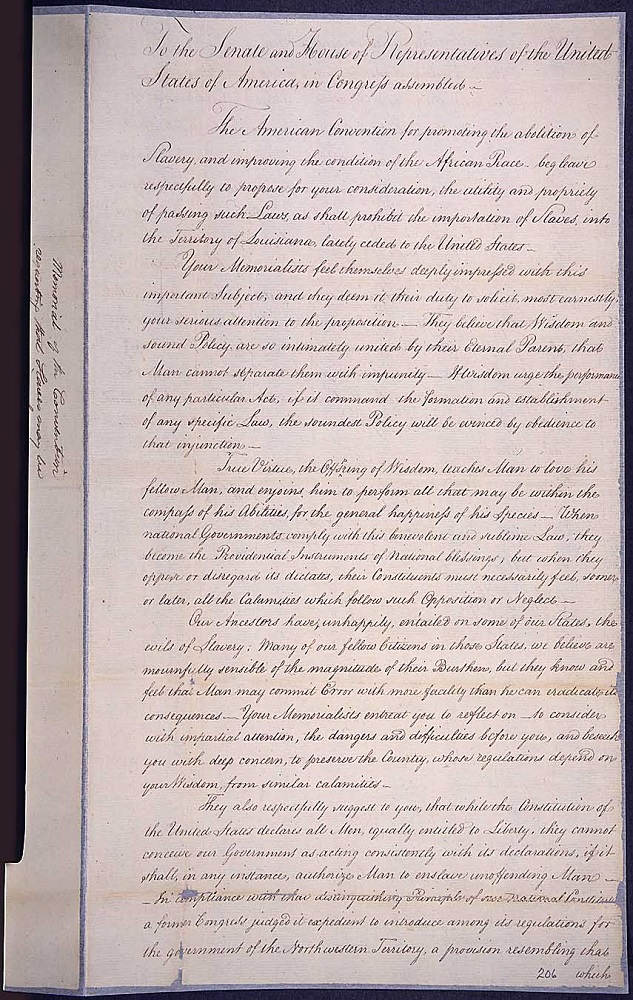 To the Senate and House of Representatives of the United
States of America, in Congress assembled –
The American Convention for promoting the abolition of
Slavery, and improving the condition of the African Race – beg leave
respectfully to propose for your consideration, the utility and propriety
of passing such Laws, as shall prohibit the importation of Slaves, into
the Territory of Louisiana, lately ceded to the United States –
Your Memorialists feel themselves deeply impressed with this
important Subject, and they deem it their duty to solicit, most earnestly,
your serious attention to the proposition – They believe that Wisdom and
sound Policy are so intimately united by their Eternal Parent, that
Man cannot separate them with impunity – If Wisdom urge the performance
of any particular Act, if it command the formation and establishment
of any specific Law, the soundest Policy will be evinced by obedience to
that injunction –
True Virtue, the Offspring of Wisdom, teaches Man to love his
fellow Man, and enjoins him to perform all that may be within the
compass of his Abilities, for the general happiness of his Species – When
national Governments comply with this benevolent and sublime Law, they
become the Providential Instruments of National blessings, but when they
oppose or disregard its dictates, their Constituents must necessarily feel, sooner
or later, all the Calamities which follow such Opposition or Neglect –
Our Ancestors have, unhappily, entailed on some of our States, the
evils of Slavery: Many of our fellow Citizens in those States, we believe are
mournfully sensible of the magnitude of their Burthen, but they know and
feel that Man may commit Error with more facility than he can eradicate its
consequences – Your Memorialists entreat you to reflect on – to consider
with impartial attention, the dangers and difficulties before you, and beseech
you with deep concern, to preserve the Country, whose regulations depend on
your Wisdom, from similar calamities –
They also respectfully suggest to you, that while the Constitution of
the United States declares all Men, equally entitled to Liberty, they cannot
conceive our Government as acting consistently with its declarations, if it
shall, in any instance, authorize Man to enslave unoffending Man –
– In compliance with that distinguishing Principle of our National Constitution
a former Congress judged it expedient to introduce among its regulations for
the government of the Northwestern Territory, a provision resembling that
206 which
Memorial of the Convention